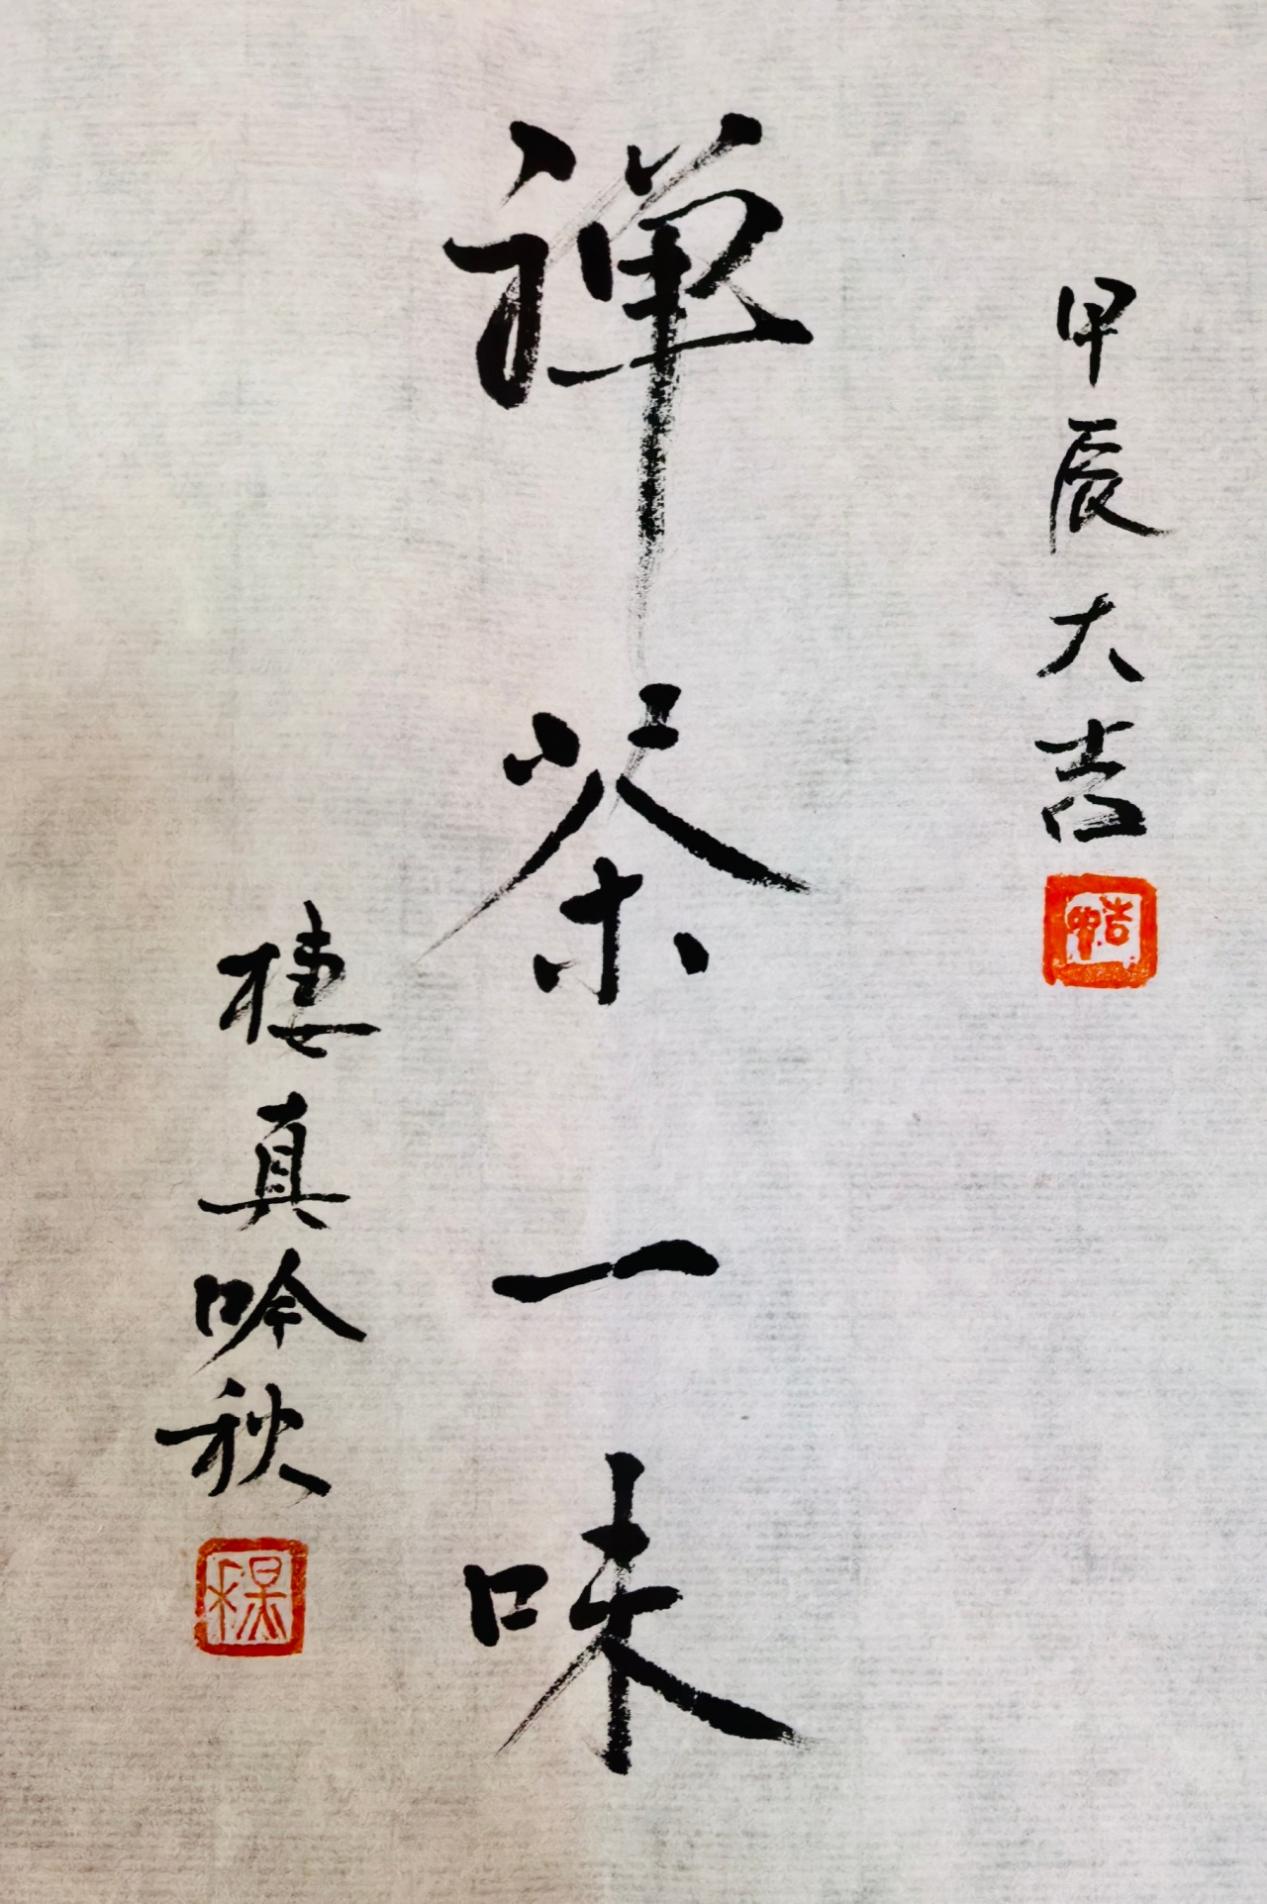 甲辰大吉
禅茶一味
棲真吟秋